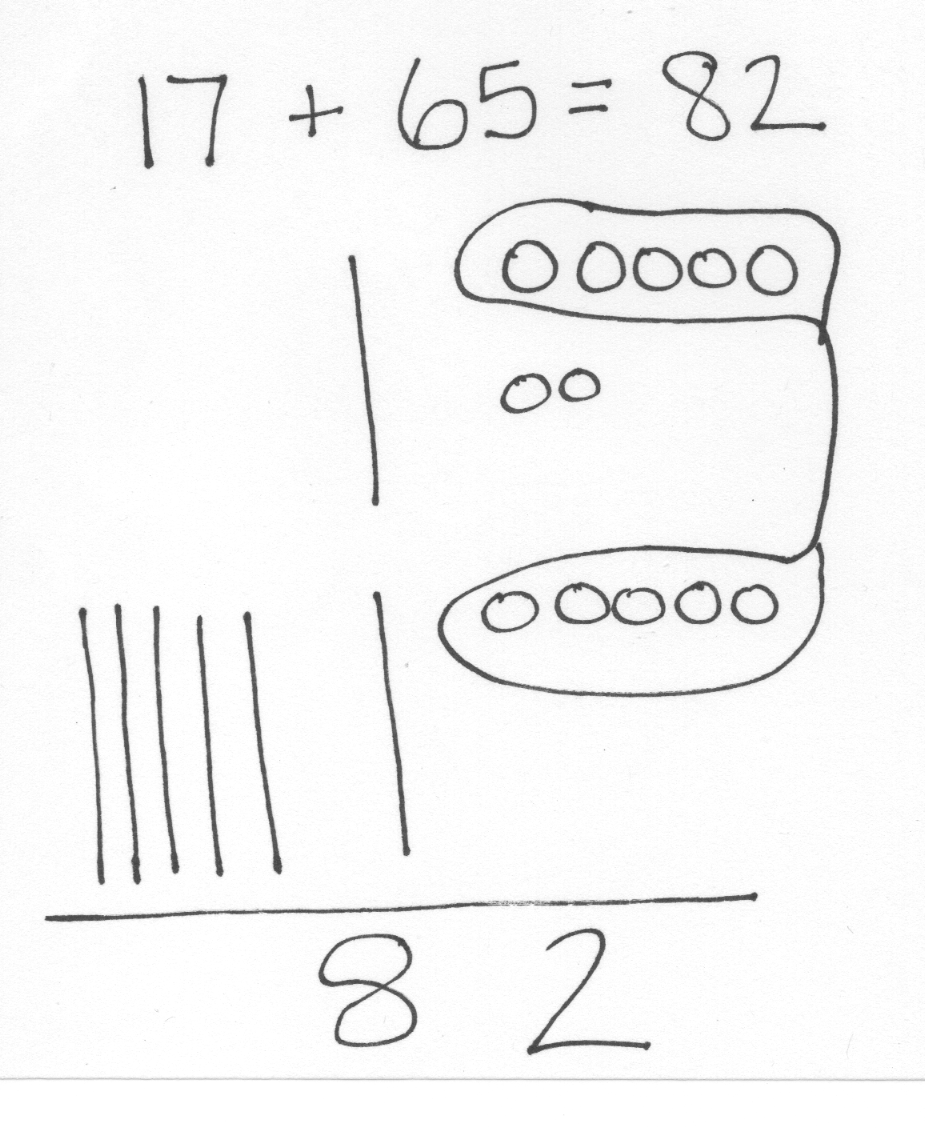 17 + 65 = 82
82